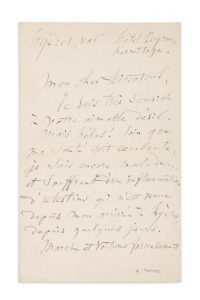 Hyères, var. Hôtel
hermitage.
Mon cher Directeur,
Je suis très sensible
à votre aimable desir.
Mais hélas! loin que
ma santé soit excellente,
je suis encore malade
et souffrant d'une inflammation
d'intestins qui m'est venue
depuis mon arrivée à Hyères
depuis quelques jours.
Marche et